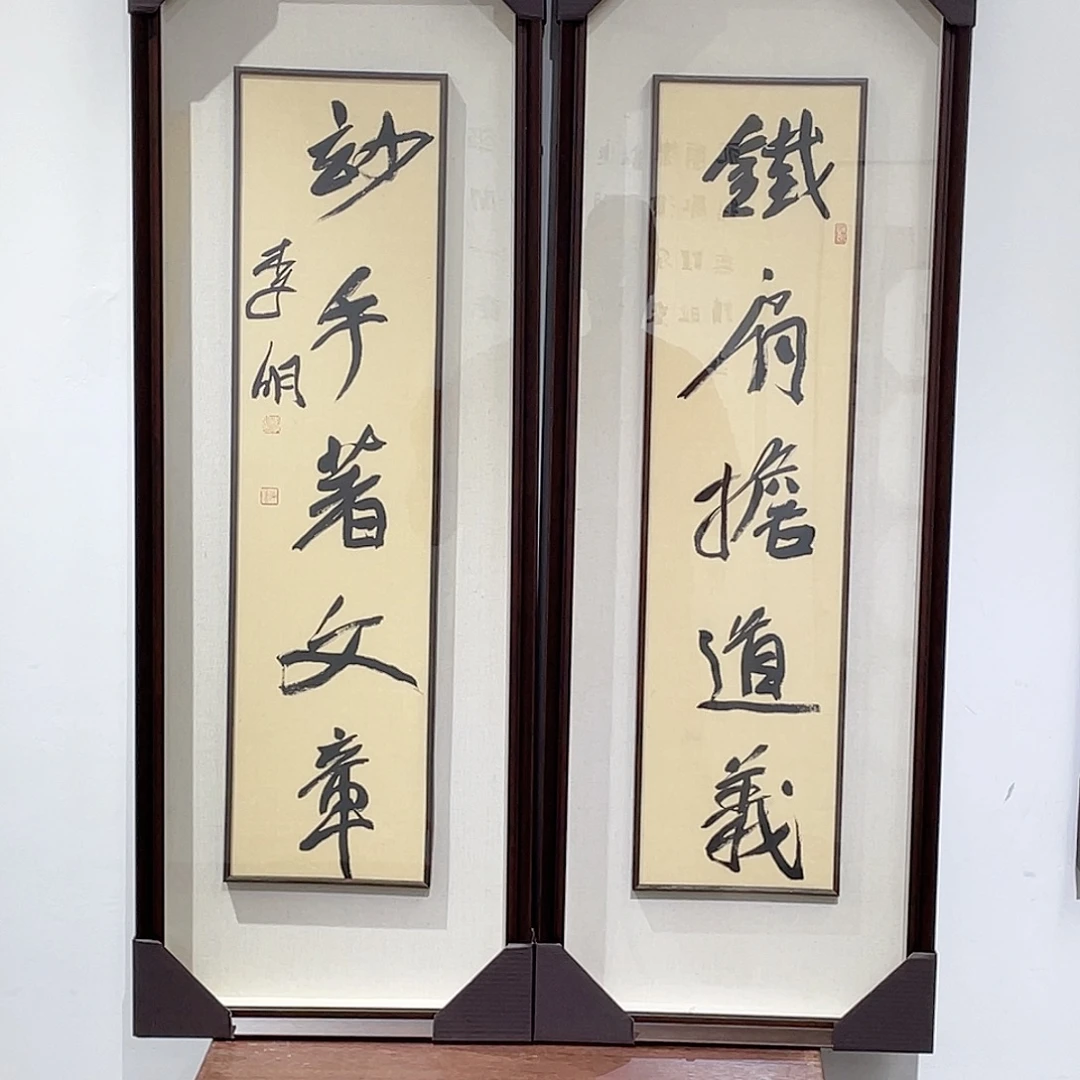 鐵肩擔道義
玅手著文章
李明